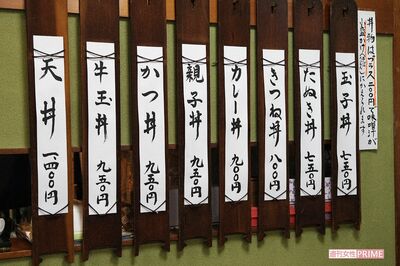 丼物はプラス二〇〇円で味噌汁が
玉子丼 七五〇円
たぬき丼 七五〇円
きつね丼 八〇〇円
カレー丼 九〇〇円
親子丼 九五〇円
かつ丼 九五〇円
牛玉丼 九五〇円
天丼 一、四〇〇円
週刊女性PRIME